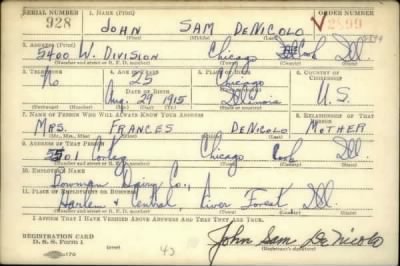 SERIAL NUMBER 1. NAME (Print) ORDER NUMBER
928 JOHN SAM DeNICOLO V2899
(First) (Middle) (Last)
2. ADDRESS (Print)
5400 W. DIVISION Chicago Cook Ill.
(Number and street or R. F. D. number) (Town) (County) (State)
3. TELEPHONE 4. AGE IN YEARS 5. PLACE OF BIRTH 6. COUNTRY OF CITIZENSHIP
No 25 Chicago
DATE OF BIRTH (Town or county)
Aug. 1915 Illinois U.S.
(Exchange) (Number) (Mo.) (Day) (Yr.) (State or country)
7. NAME OF PERSON WHO WILL ALWAYS KNOW YOUR ADDRESS 8. RELATIONSHIP OF THAT PERSON
MRS. FRANCES DeNICOLO MOTHER
(Mr., Mrs., Miss) (First) (Middle) (Last)
9. ADDRESS OF THAT PERSON
Chicago Cook Ill.
(Number and street or R. F. D. number) (Town) (County) (State)
10. EMPLOYER'S NAME
Bowman Dairy Co.,
11. PLACE OF EMPLOYMENT OR BUSINESS
Harlem & Central, River Forest Ill.
(Number and street or R. F. D. number) (Town) (County) (State)
I AFFIRM THAT I HAVE VERIFIED ABOVE ANSWERS AND THAT THEY ARE TRUE.
REGISTRATION CARD
D. S. S. Form 1 John Sam DeNicolo
(Registrant's signature)